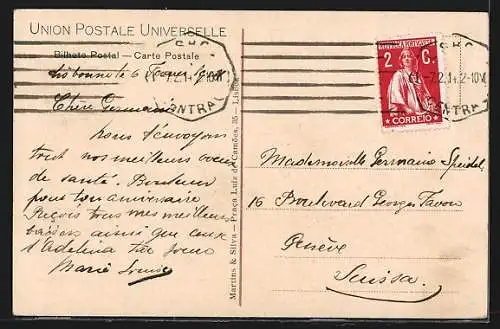 UNION POSTALE UNIVERSELLE
Bilhete Postal — Carte Postale
Lisbonne le 6
Chère Germaine
Nous t'envoyons
tout nos meilleurs voeux
de santé. Bonheur
pour ton anniversaire
Reçois tous mes meilleurs
baisers ainsi que ceux
d'Adelina
Marie Louise
Martins & Silva — Praça Luiz de Camões, 35 — Lisboa
CENTRAL
7.2.14 2-10M
REPUBLICA PORTUGUESA
2 C.
CORREIO
Mademoiselle Germaine Speidel
16 Boulevard Georges Favon
Genève
Suissa.